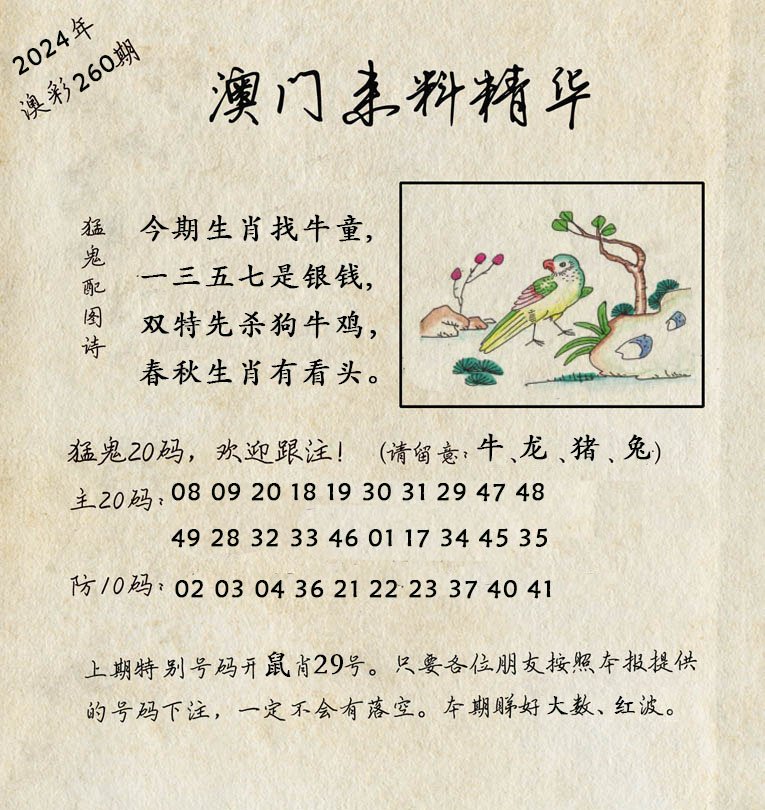 2024年
澳彩260期
澳门来料精华
猛鬼配图诗
今期生肖找牛童，
一三五七是银钱，
双特先杀狗牛鸡，
春秋生肖有看头。
猛鬼20码，欢迎跟注！（请留意：牛、龙、猪、兔）
主20码：08 09 20 18 19 30 31 29 47 48
49 28 32 33 46 01 17 34 45 35
防10码：02 03 04 36 21 22 23 37 40 41
上期特别号码开鼠肖29号。只要各位朋友按照本报提供
的号码下注，一定不会有落空。本期睇好大数、红波。